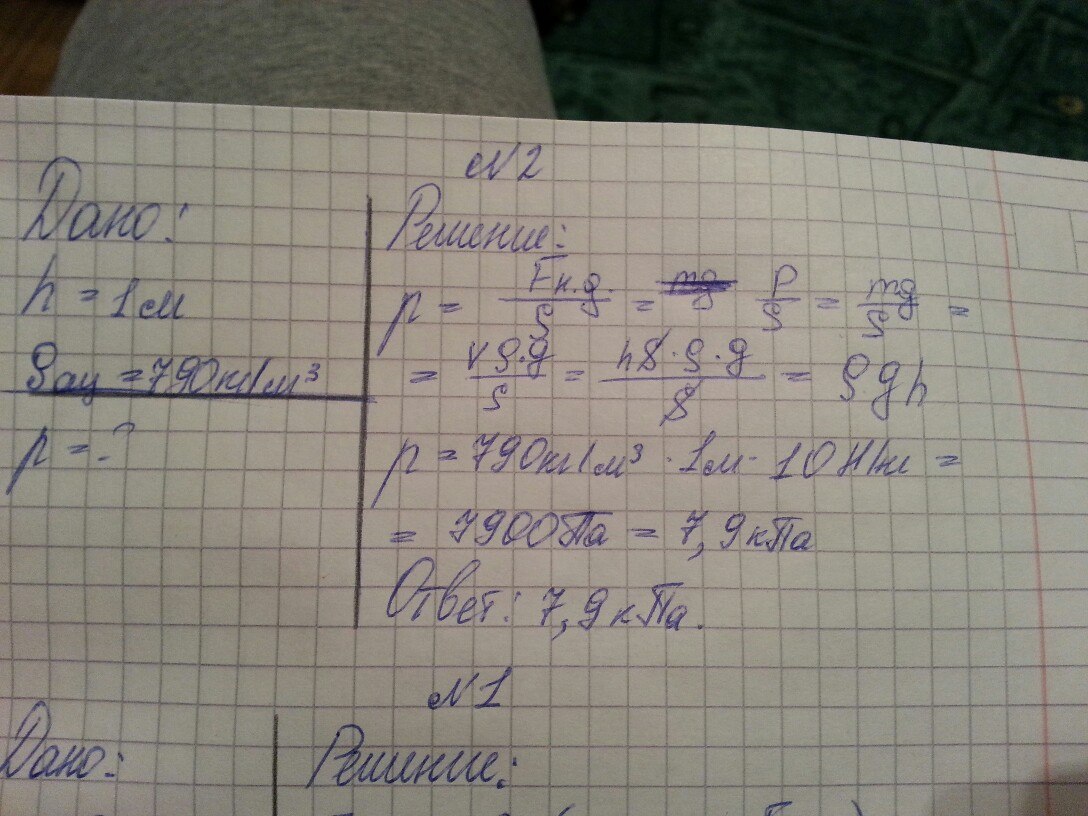 №2
Дано:
h = 1м
ρац = 790кг/м³
p = ?
Решение:
p = Fн.д./S = mg P/S = mg/S =
= Vρ·g/S = hS·ρ·g/S = ρgh
p = 790кг/м³ · 1м · 10 Н/кг =
= 7900Па = 7,9кПа
Ответ: 7,9кПа.
№1
Дано:
Решение: